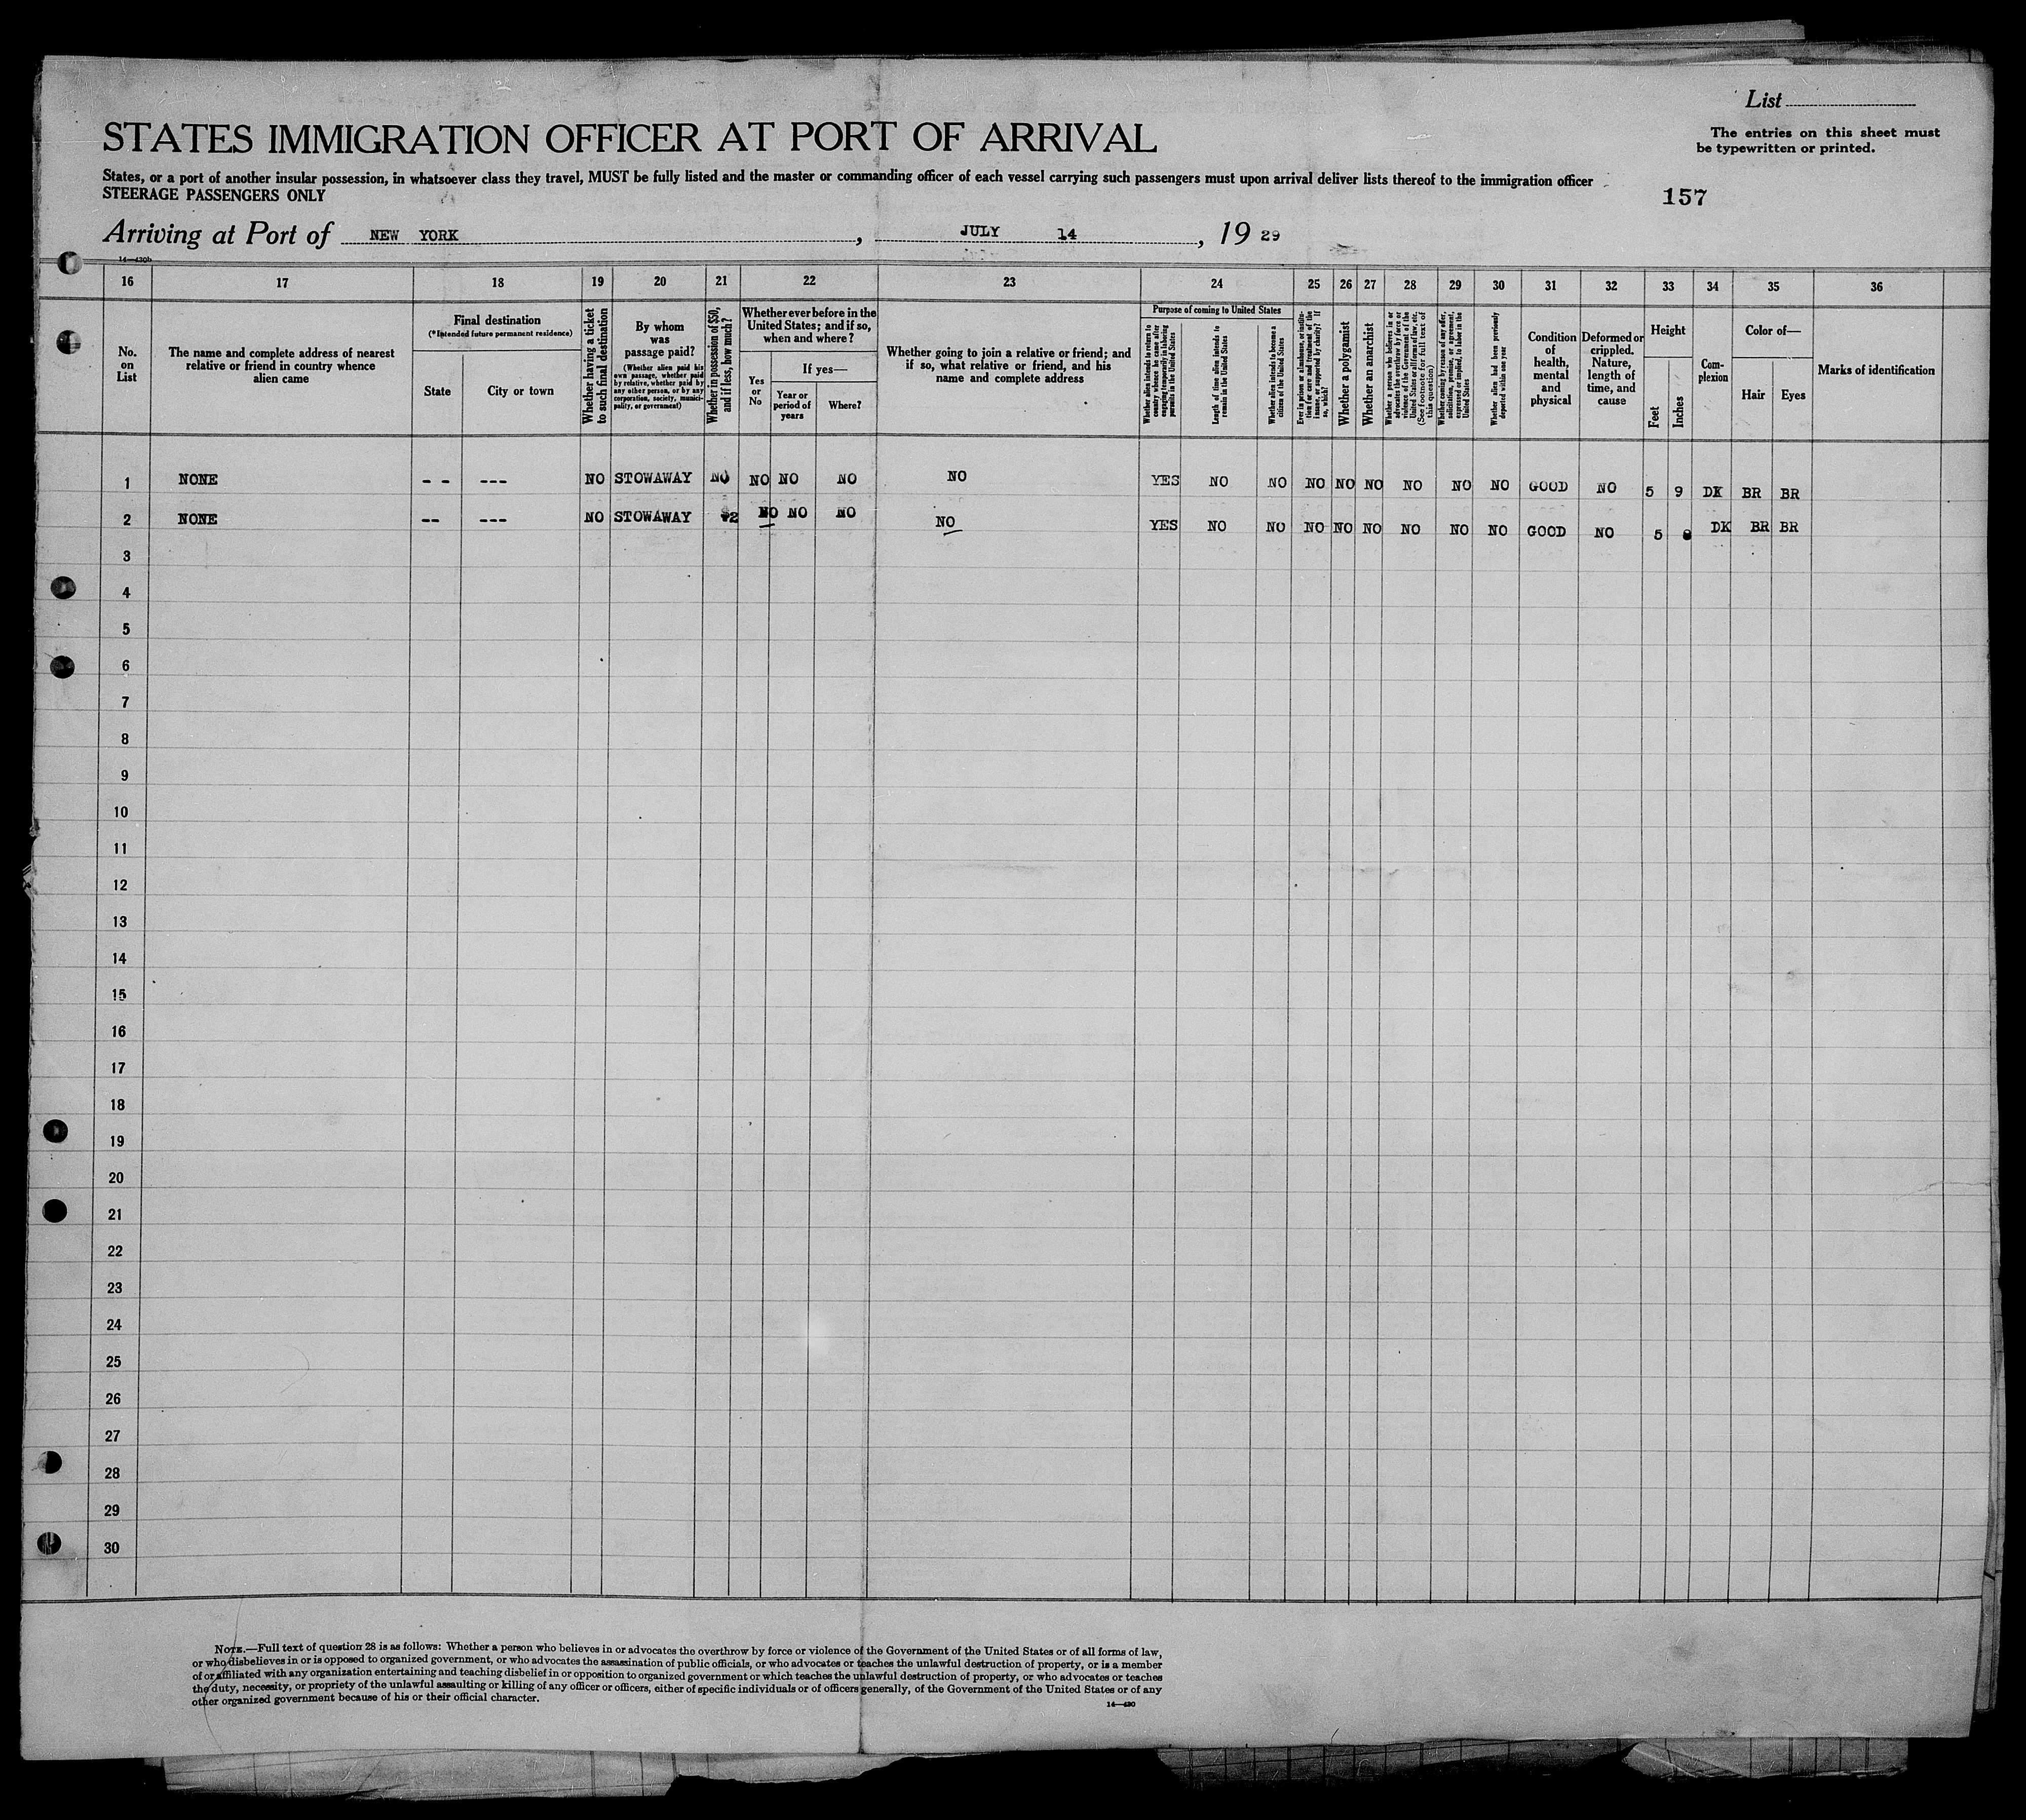 List
STATES IMMIGRATION OFFICER AT PORT OF ARRIVAL
The entries on this sheet must
be typewritten or printed.
States, or a port of another insular possession, in whatsoever class they travel, MUST be fully listed and the master or commanding officer of each vessel carrying such passengers must upon arrival deliver lists thereof to the immigration officer
STEERAGE PASSENGERS ONLY
157
Arriving at Port of NEW YORK, JULY 14, 19 29
14—430b
16 17 18 19 20 21 22 23 24 25 26 27 28 29 30 31 32 33 34 35 36
No.
on
List
The name and complete address of nearest
relative or friend in country whence
alien came
Final destination
(*Intended future permanent residence)
State
City or town
Whether having a ticket
to such final destination
By whom
was
passage paid?
(Whether alien paid his
own passage, whether paid
by relative, whether paid by
any other person, or by any
corporation, society, munici-
pality, or government)
Whether in possession of $50,
and if less, how much?
Whether ever before in the
United States; and if so,
when and where?
Yes
or
No
If yes—
Year or
period of
years
Where?
Whether going to join a relative or friend; and
if so, what relative or friend, and his
name and complete address
Purpose of coming to United States
Whether alien intends to return to
country whence he came after
engaging temporarily in laboring
pursuits in the United States
Length of time alien intends to
remain in the United States
Whether alien intends to become a
citizen of the United States
Ever in prison or almshouse, or institu-
tion for care and treatment of the
insane, or supported by charity? If
so, which?
Whether a polygamist
Whether an anarchist
Whether a person who believes in or
advocates the overthrow by force or
violence of the Government of the
United States or all forms of law, etc.
(See footnote for full text of
this question)
Whether coming by reason of any offer,
solicitation, promise, or agreement,
expressed or implied, to labor in the
United States
Whether alien had been previously
deported within one year
Condition
of
health,
mental
and
physical
Deformed or
crippled.
Nature,
length of
time, and
cause
Height
Feet
Inches
Com-
plexion
Color of—
Hair
Eyes
Marks of identification
1 NONE - - --- NO STOWAWAY NO NO NO NO NO YES NO NO NO NO NO NO NO NO GOOD NO 5 9 DK BR BR
2 NONE -- --- NO STOWAWAY 2 NO NO NO NO YES NO NO NO NO NO NO NO NO GOOD NO 5 8 DK BR BR
3
4
5
6
7
8
9
10
11
12
13
14
15
16
17
18
19
20
21
22
23
24
25
26
27
28
29
30
NOTE.—Full text of question 28 is as follows: Whether a person who believes in or advocates the overthrow by force or violence of the Government of the United States or of all forms of law,
or who disbelieves in or is opposed to organized government, or who advocates the assassination of public officials, or who advocates or teaches the unlawful destruction of property, or is a member
of or affiliated with any organization entertaining and teaching disbelief in or opposition to organized government or which teaches the unlawful destruction of property, or who advocates or teaches
the duty, necessity, or propriety of the unlawful assaulting or killing of any officer or officers, either of specific individuals or of officers generally, of the Government of the United States or of any
other organized government because of his or their official character.
14—430